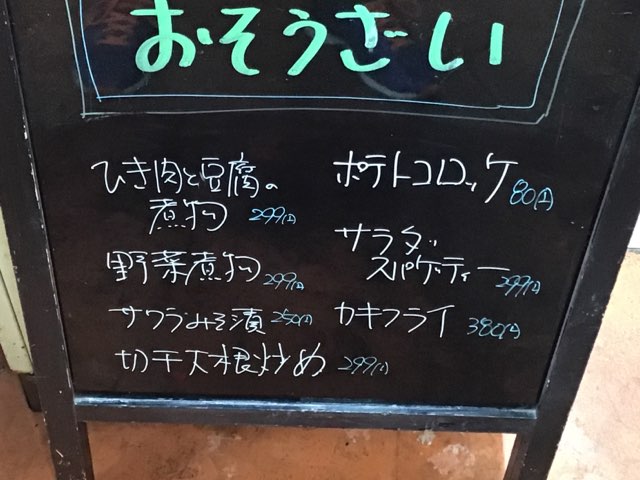 おそうざい
ひき肉と豆腐の
煮物 299円
野菜煮物 299円
サワラみそ漬 250円
切干大根炒め 299円
ポテトコロッケ 80円
サラダ
スパゲティー 299円
カキフライ 380円